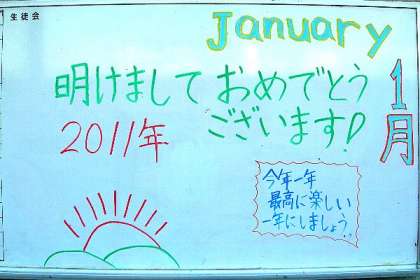 生徒会
January
1月
明けましておめでとう
ございます!
2011年
今年一年
最高に楽しい
一年にしましょう!!